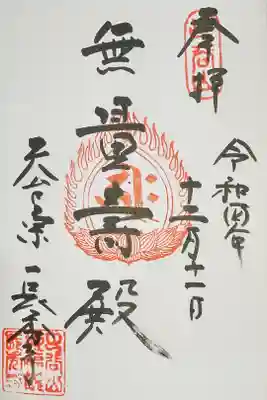 奉拝
令和四年
十二月十一日
無量壽殿
天台宗